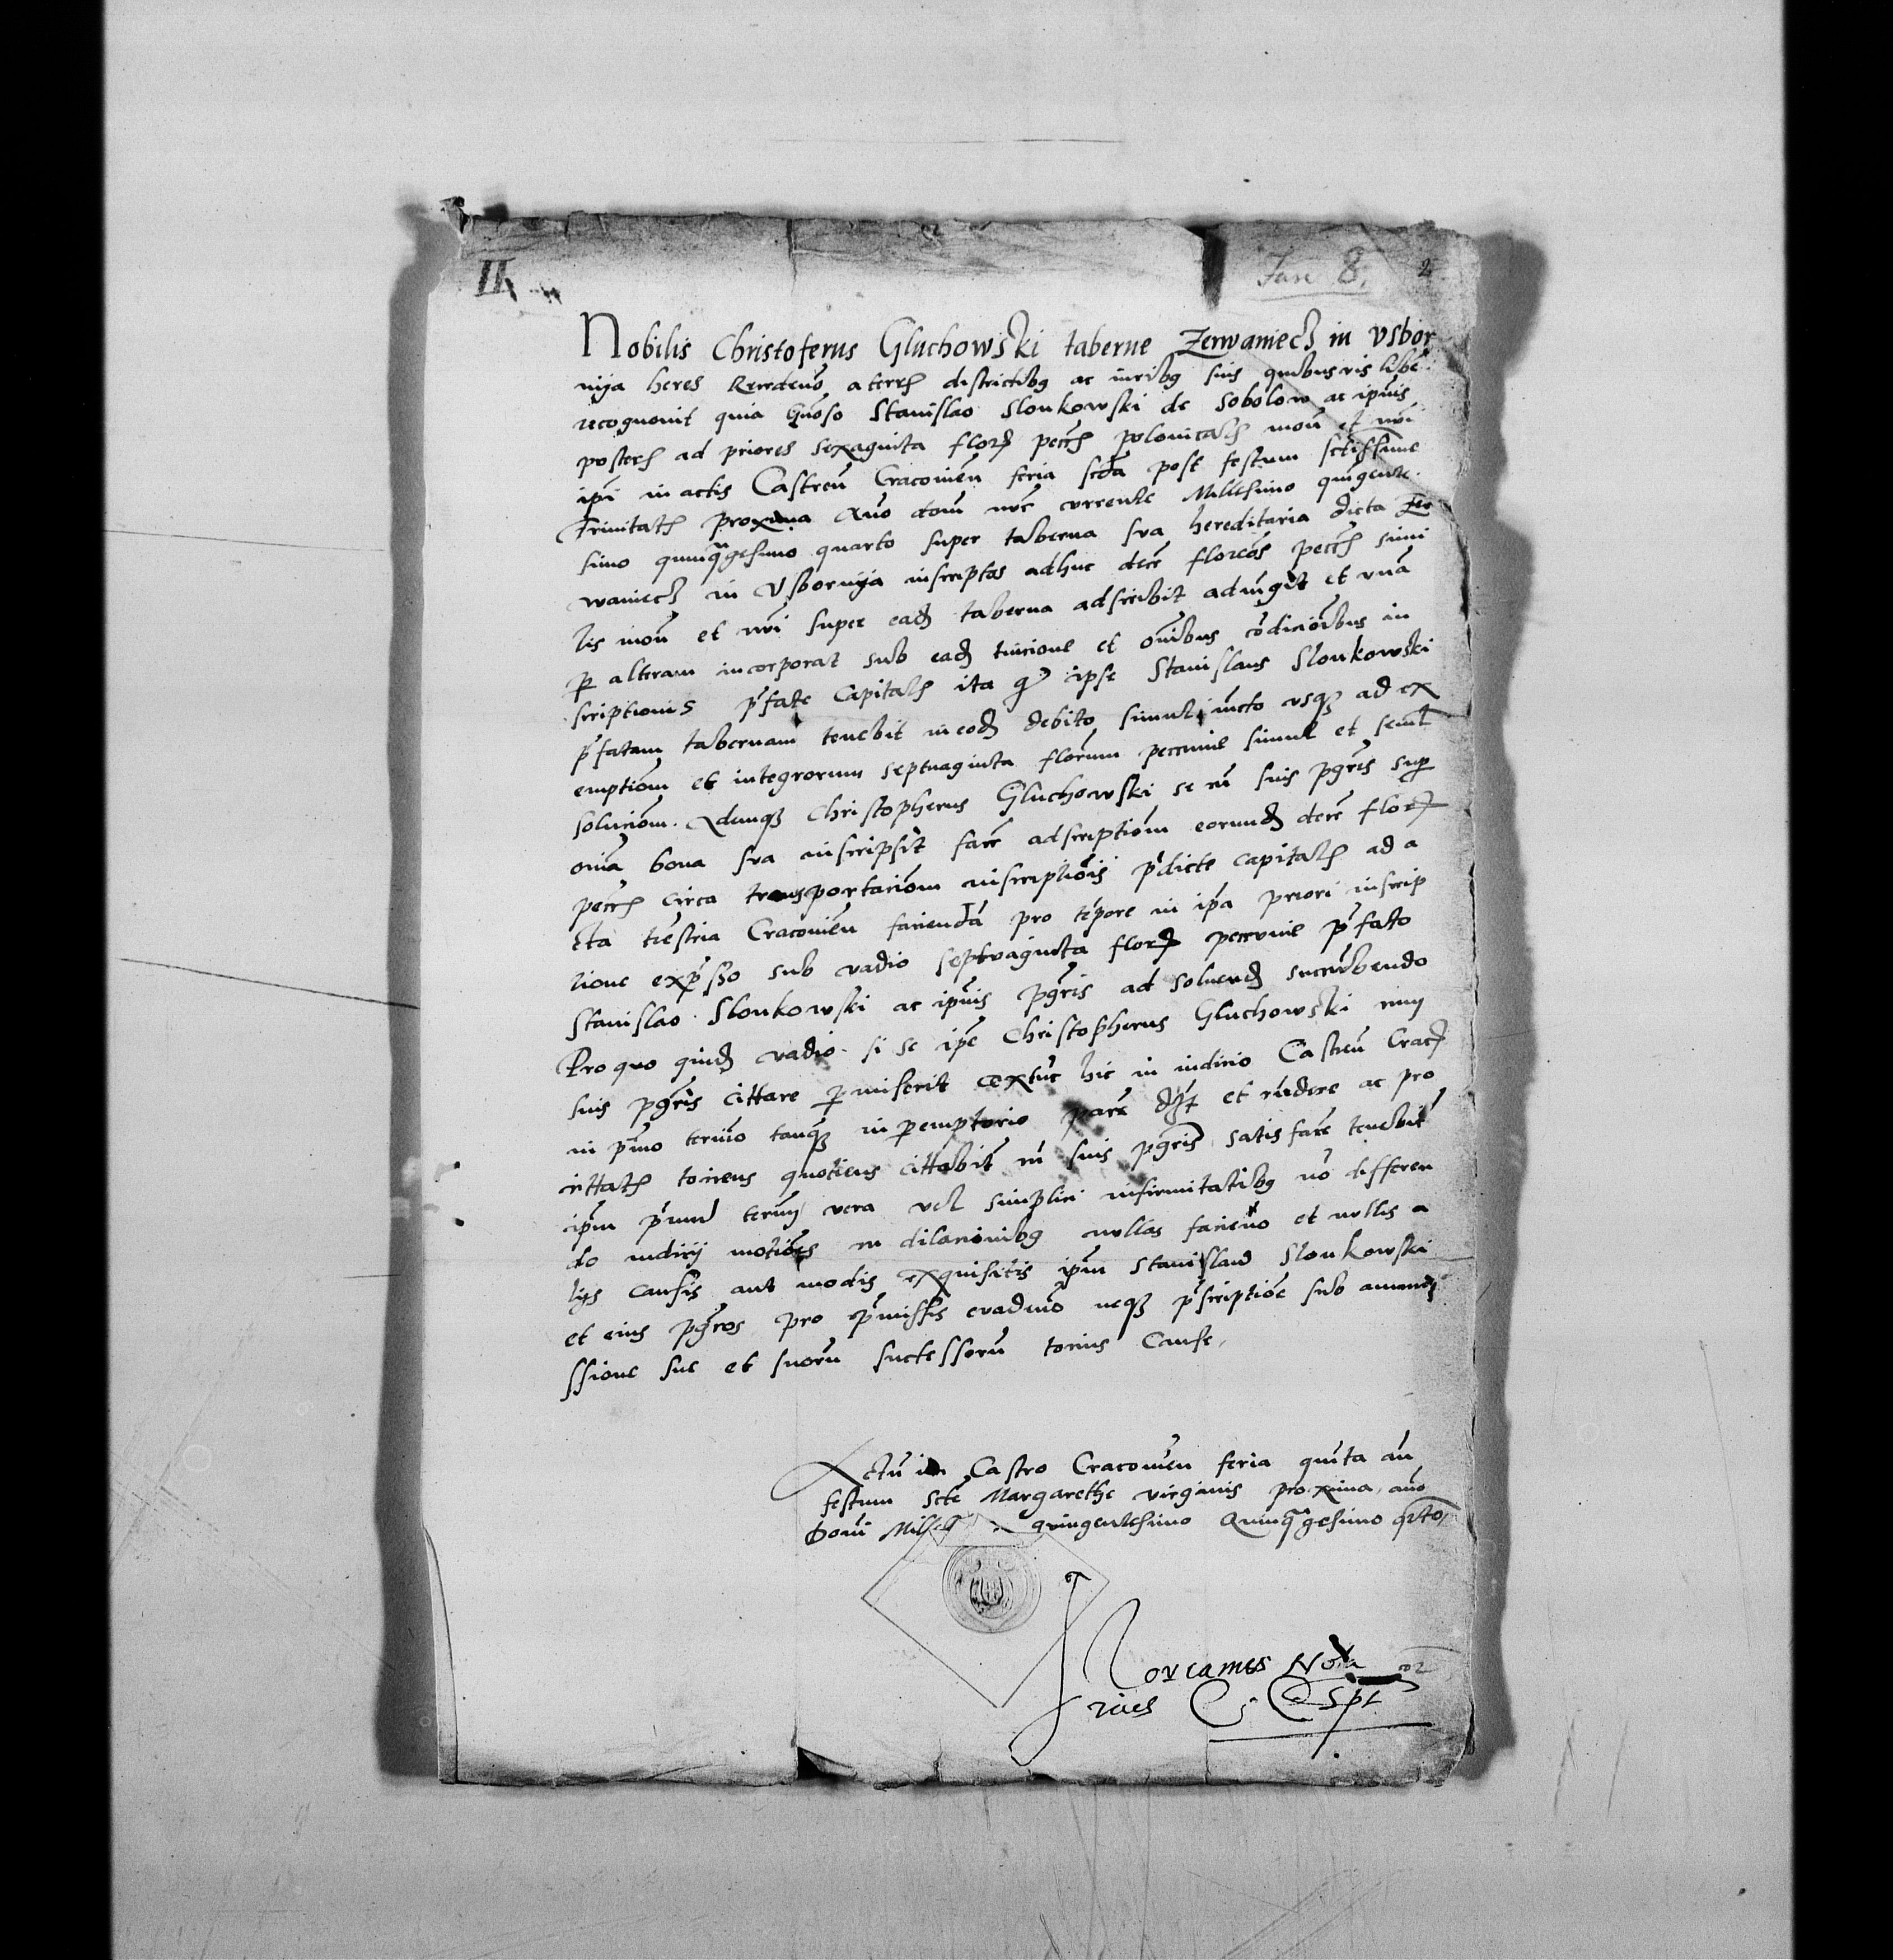 II
Fasc 8. 2
Nobilis Christoferus Gluchowski taberne Zerwaniecz in Vsbor
nija heres Recedeno a terris districtibg ac iuribg suis quibusvis libe
recognovit quia Gnoso Stanislao Slonkowski de Sobolow ac ipius
posteris ad priores sexaginta flor pecce polonicalis mon et nri
ipi in actis Castren Cracovien feria scda post festum sctissime
Trinitatis proxima Ano dom nrc currente Millesimo quingente
simo quinqgesimo quarto super taberna sua hereditaria dicta Zer
waniecz in Vsbornija inscriptos adhuc dece florenos pecce simi
lis mon et nri super eade taberna adscribit adiungit et vna
p alteram incorporat sub eade tuicione et omnibus codicioibus in
scriptionis pfate capitalis ita q ipse Stanislaus Slonkowski
pfatam tabernam tenebit in eode debito simul iuncto vsqz ad ex
emptiom et integrorum septuaginta florenum peccunie simul et semel
soluciom. Idemqz Christopherus Gluchowski se cu suis pgris sup
oma bona sua inscripsit face adscriptiom eorunde dece flor
pecce circa transportaciom inscriptiois pdicte capitalis ad a
cta trestria Cracovien facienda pro tepore in ipa priori inscrip
tione expsso sub vadio septuaginta flor peccunie pfato
Stanislao Slonkowski ac ipius pgris ad solvend succubendo
Pro quo quid vadio si se ipe Christopherus Gluchowski cu
suis pgris cittare pmiserit extuc hic in iudicio Castren Crac
in pmo termo tanqz in peremptorio pare et rndere ac pro
cittatis tociens quotiens cittabit cu suis pgris satis face tenebit
ipm pmu termi vera vel simplici infirmitatibg no differen
do iudicij motioes cu dilacionibg nullas facieno et nullis a
lijs causis aut modis exquisitis ipm Stanislau Slonkowski
et eius pgros pro pmissis evadeno neqz pscriptioe sub amme
ssione sue et suoru successoru tocius Cause.
Actu in Castro Cracovien feria quita an
festum scte Margarethe virginis proxima ano
Domi quingentesimo Quinqgesimo qrto